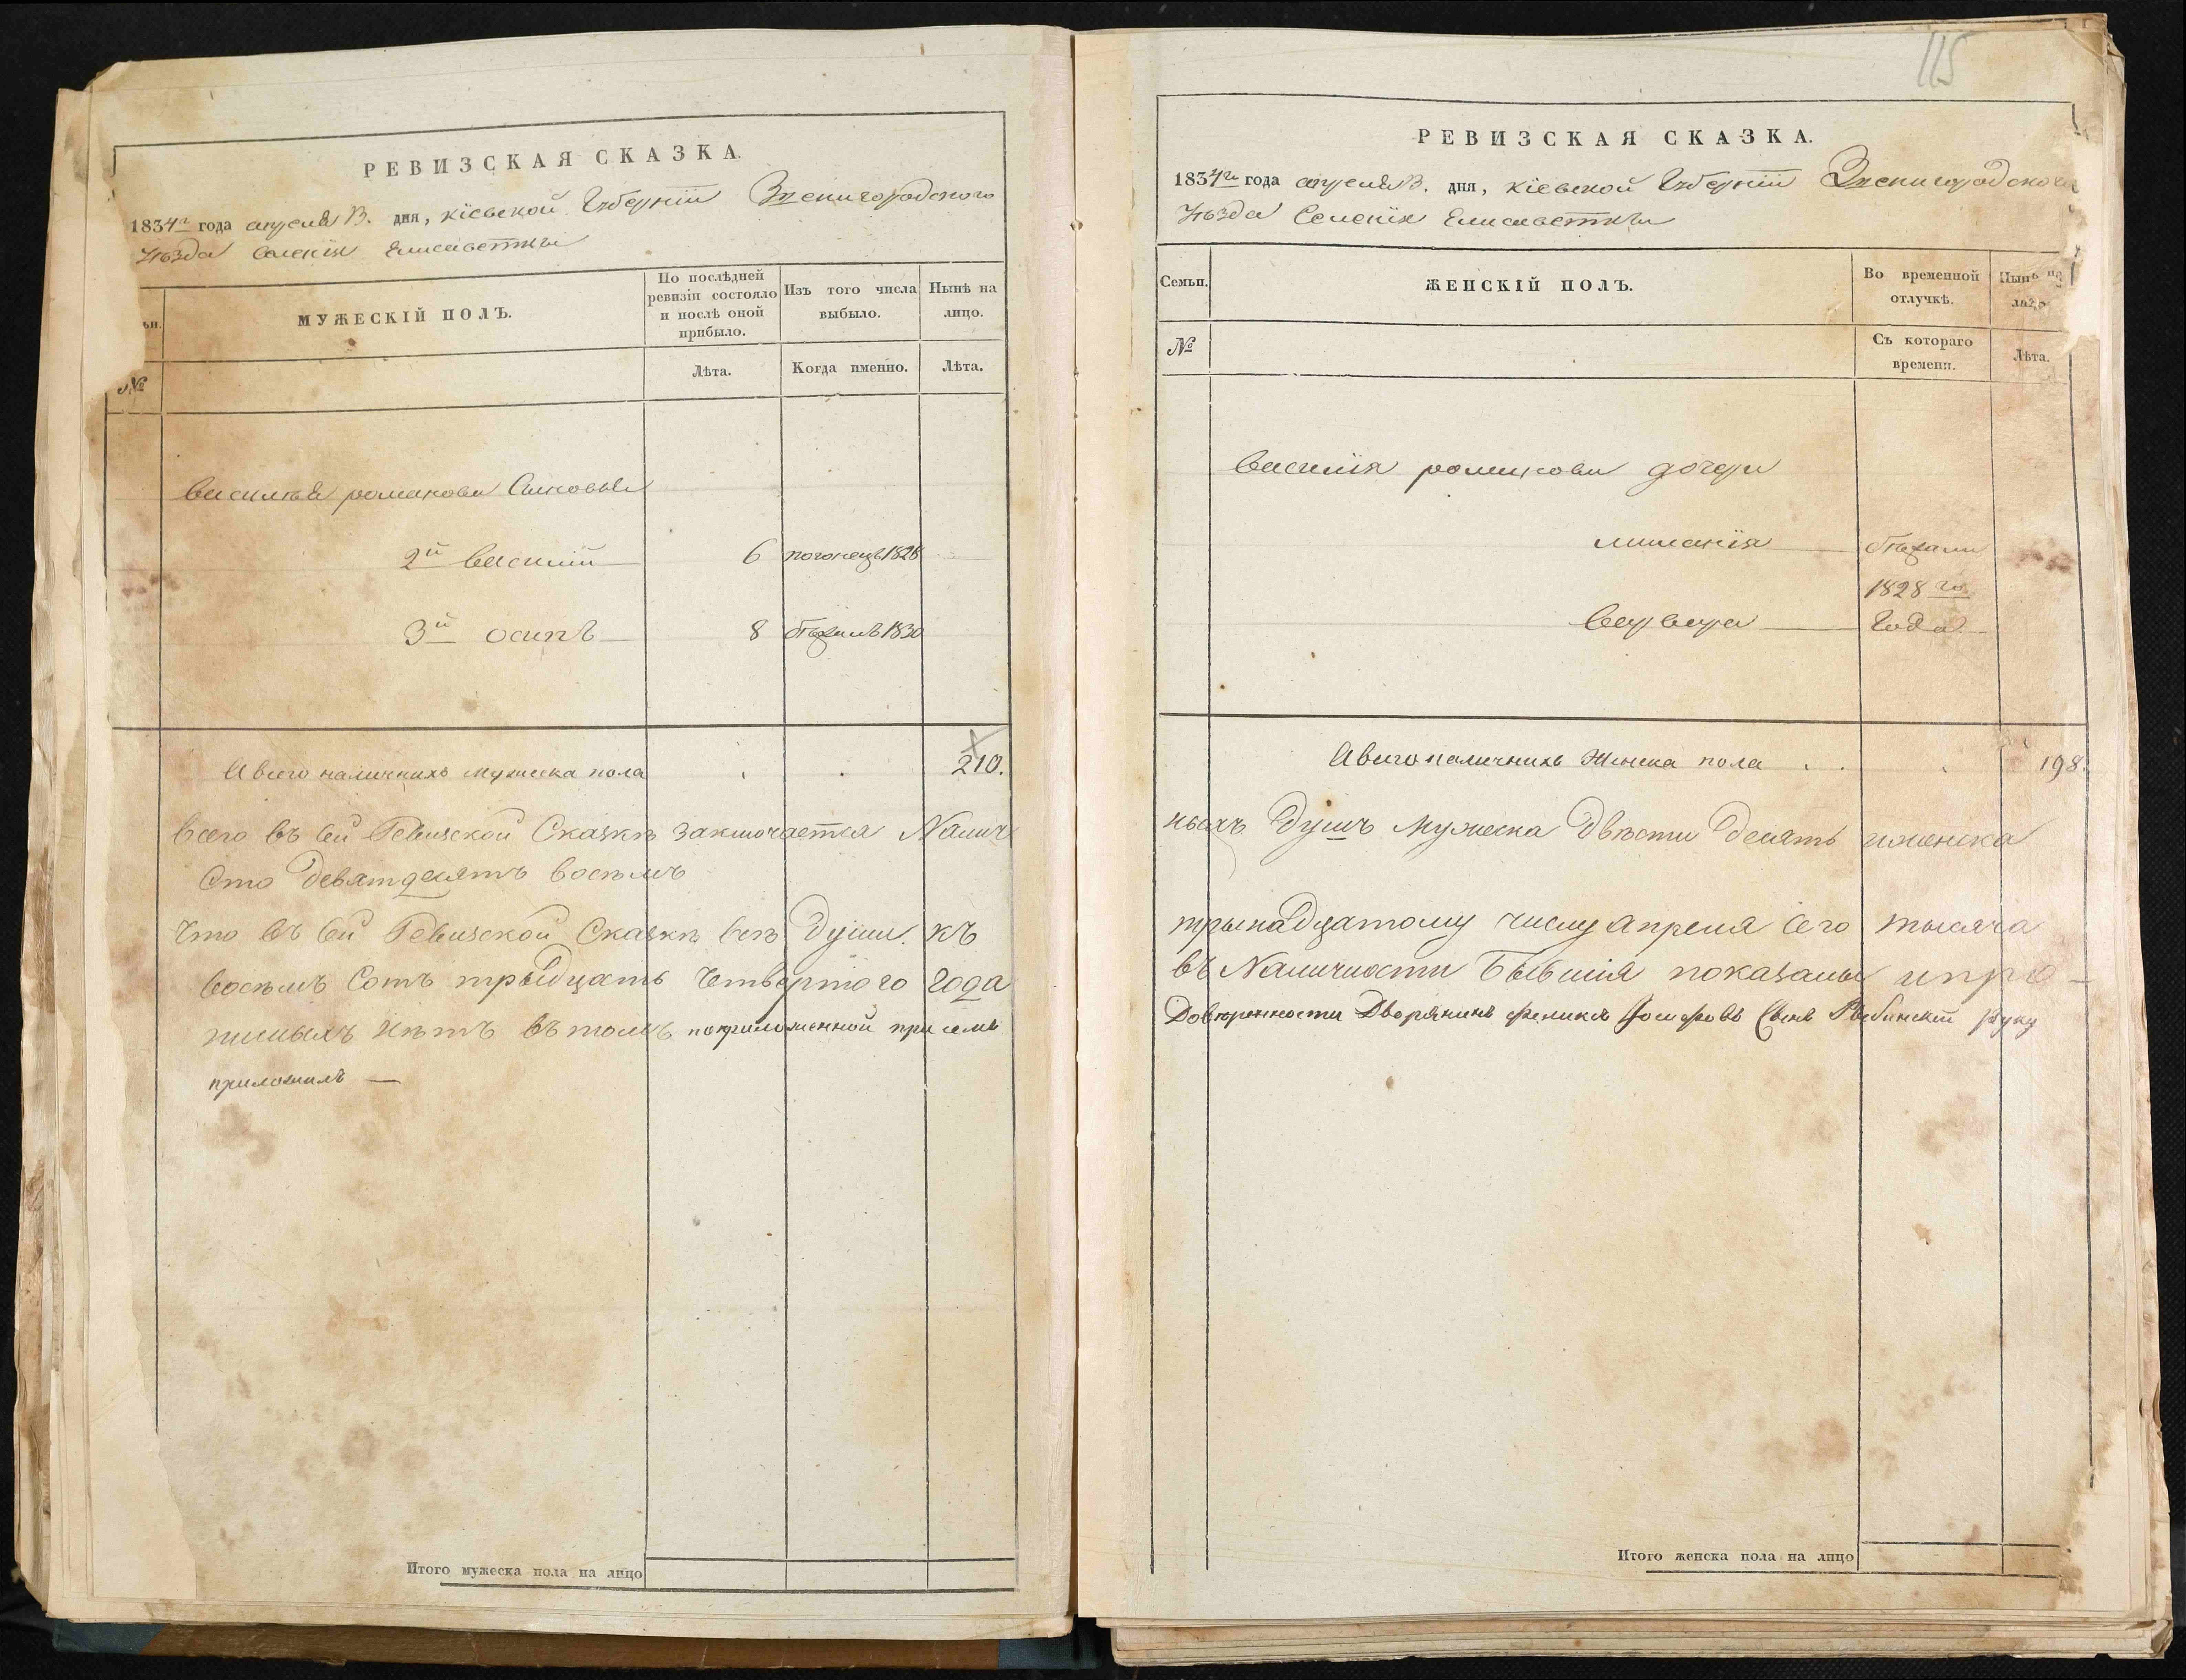 РЕВИЗСКАЯ СКАЗКА.
1834го года апреля 13. дня, кіевской Губерніи Звенигородского
Уѣзда Селенія Елисаветки
МУЖЕСКІЙ ПОЛЪ.
По послѣдней ревизіи состояло и послѣ оной прибыло.
Изъ того числа выбыло.
Нынѣ на лицо.
№
Лѣта.
Когда именно.
Лѣта.
Василья романова Сыновья
2й Василій 6 1828
3й осипъ 8 1830
А всего наличнихъ мужеска пола 210.
Всего въ сей Ревизской Сказкѣ заключается Налич
Сто девятдесятъ восѣмъ
Что въ сей Ревизской Сказкѣ всѣ Души къ
восѣмъ Сотъ трыдцать Четвертого года
писныхъ нѣтъ вътомъ поприложенной при семъ
приложилъ —
Итого мужеска пола на лицо
115
РЕВИЗСКАЯ СКАЗКА.
1834го года апреля 13. дня, кіевской Губерніи Звенигородского
Уѣзда Селенія Елисаветки
Семьи.
ЖЕНСКІЙ ПОЛЪ.
Во временной отлучкѣ.
Нынѣ на лицо
№
Съ котораго времени.
Лѣта.
Василія романова дочери
миланія
1828го
варвара Года
А всего наличнихъ Женска пола 198.
ныхъ Душъ Мужеска Двѣсти Десять иженска
трынадцатому числу апреля сего тысяча
въ Наличности Бывшія показаны ипро-
Довѣренности Дворянинъ Феликсъ Іосифовъ Сынъ руку
Итого женска пола на лицо